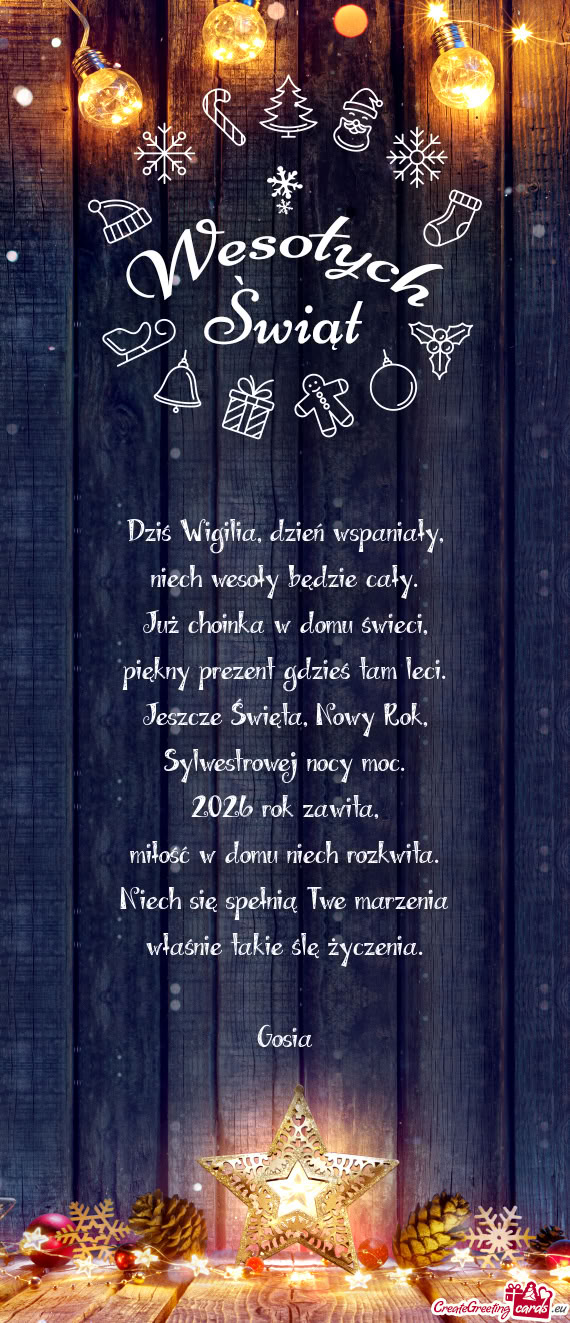 Wesołych
Świąt
Dziś Wigilia, dzień wspaniały,
niech wesoły będzie cały.
Już choinka w domu świeci,
piękny prezent gdzieś tam leci.
Jeszcze Święta, Nowy Rok,
Sylwestrowej nocy moc.
2026 rok zawita,
miłość w domu niech rozkwita.
Niech się spełnią Twe marzenia
właśnie takie ślę życzenia.
Gosia
CreateGreetingcards.eu